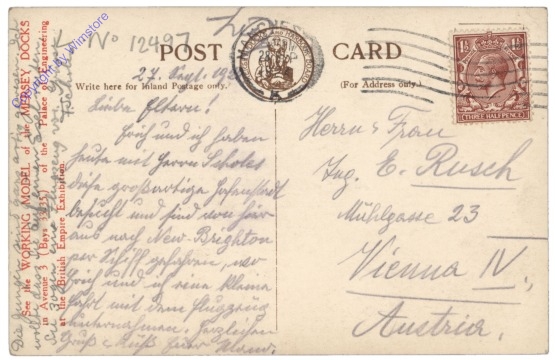 No 12497
POST CARD
Write here for Inland Postage only.
(For Address only.)
27. Sept. 192
Liebe Eltern!
Erich und ich haben
heute mit Herrn Scholes
diese großartige Hafenstadt
besucht und sind von hier
aus nach New-Brighton
per Schiff gefahren, wo
Erich und ich eine kleine
Fahrt mit dem Flugzeug
unternahmen. Herzlichen
Gruß & Kuß Euer
Herrn & Frau
Ing. E. Rusch
Mühlgasse 23
Vienna IV.,
Austria.
THREE HALFPENCE
See the WORKING MODEL of the MERSEY DOCKS
in Avenue 14 (Bays 13-15) of the Palace of Engineering
at the British Empire Exhibition.
by Wimstore